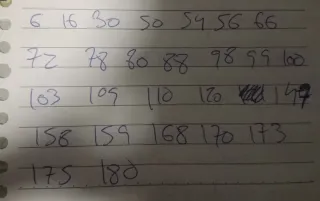 6 16 30 50 54 56 66
72 78 80 88 98 99 100
103 109 110 120
158 159 168 170 173
175 180